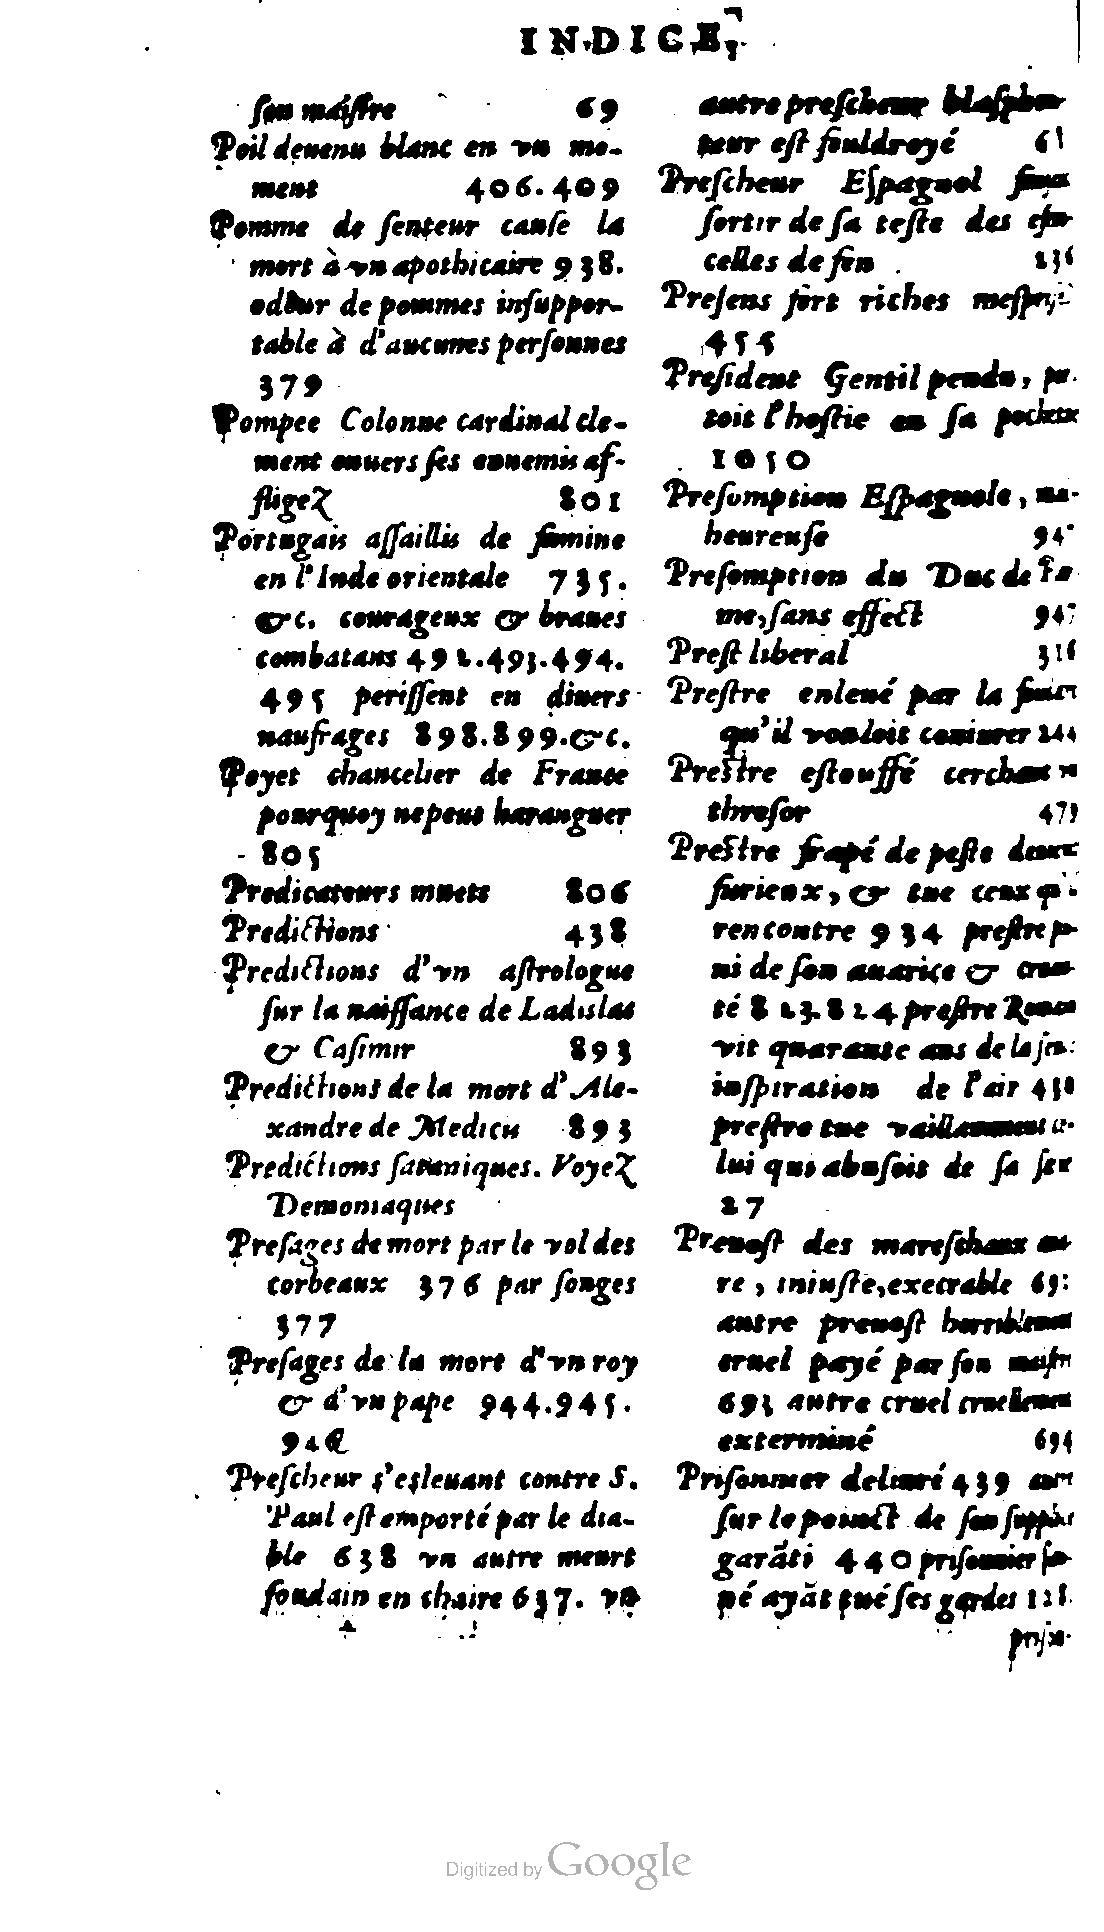 INDICE,
son maistre 69
Poil deuenu blanc en vn mo-
ment 406.409
Pomme de senteur cause la
mort à vn apothicaire 938.
odeur de pommes insuppor-
table à d'aucunes personnes
379
Pompee Colonne cardinal cle-
ment enuers ses ennemis af-
fligez 801
Portugais assaillis de famine
en l'Inde orientale 735.
&c. courageux & braues
combatans 492.493.494.
495 perissent en diuers
naufrages 898.899.&c.
Poyet chancelier de France
pourquoy ne peut haranguer
805
Predicateurs muets 806
Predictions 438
Predictions d'vn astrologue
sur la naissance de Ladislas
& Casimir 893
Predictions de la mort d'Ale-
xandre de Medicis 893
Predictions sataniques. Voyez
Demoniaques
Presages de mort par le vol des
corbeaux 376 par songes
377
Presages de la mort d'vn roy
& d'vn pape 944.945.
Prescheur s'esleuant contre S.
Paul est emporté par le dia-
ble 638 vn autre meurt
soudain en chaire 637. vn
autre prescheur blasphea-
teur est fouldroyé
Prescheur Espagnol
sortir de sa teste des
celles de feu
Presens fort riches
455
President Gentil pendu,
toit l'hostie en sa
1050
Presomption Espagnole,
heureuse
Presomption du Duc de
me, sans effect 947
Prest liberal 316
Prestre enleué par la
qu'il vouloit coniurer 244
Prestre estouffé cerchant vn
thresor
Prestre frapé de peste
furieux, & tue ceux
rencontre 934 prestre
ni de son auarice &
té 823.824 prestre
vit quarante ans de la
inspiration de l'air
prestre tue vaillamment
lui qui abusoit de sa
27
Preuost des mareschaux
re, iniuste, execrable
autre preuost horriblement
cruel payé par son
693 autre cruel cruellement
exterminé 694
Prisonnier deliuré 439
sur le poinct de son
garãti 440 prisonnier
pé ayãt tué ses gardes